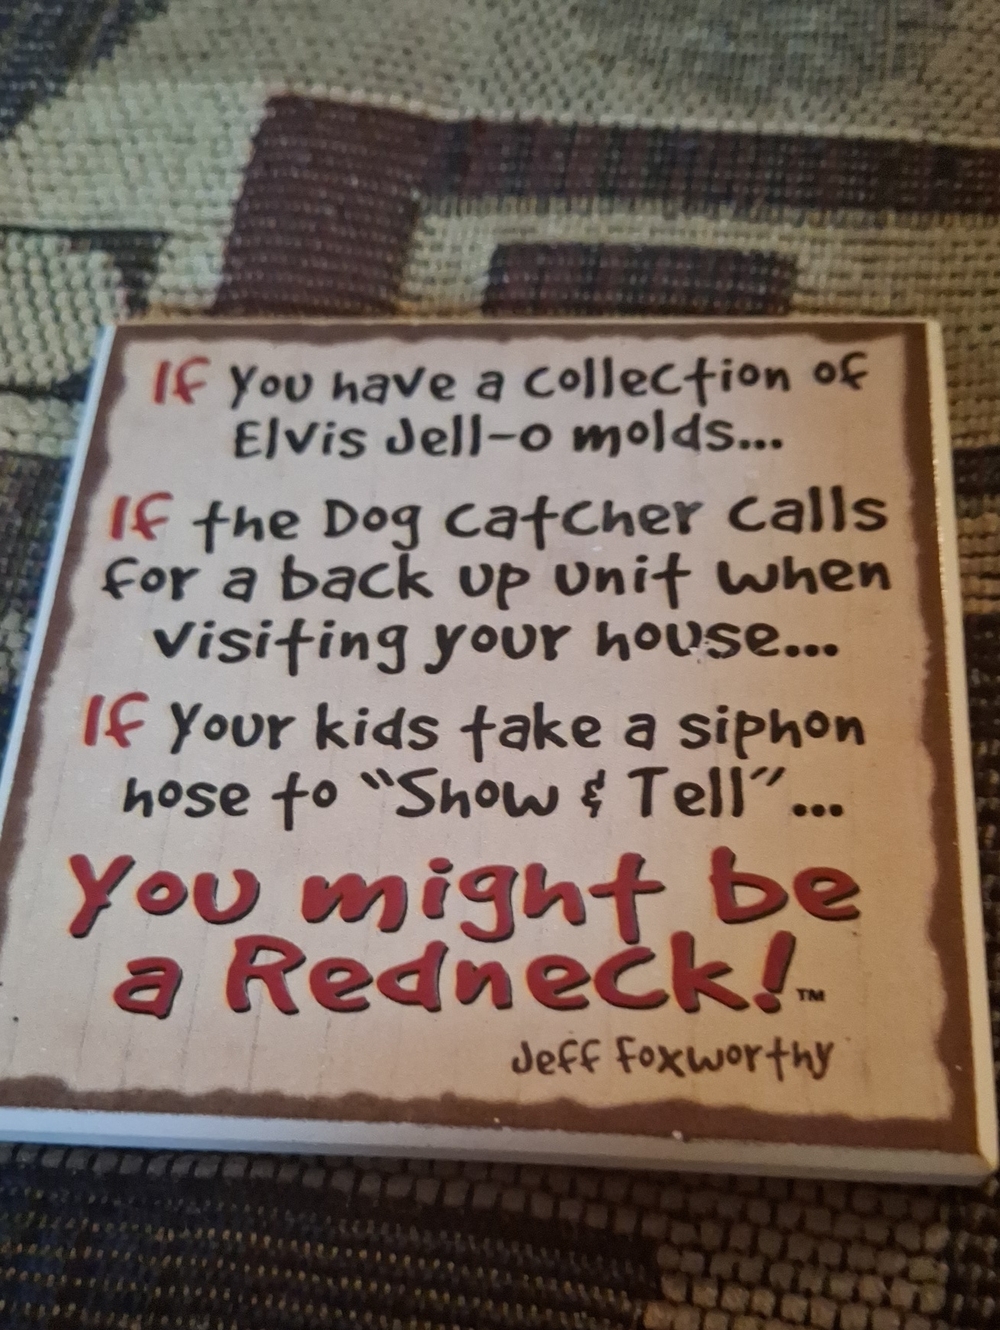 If you have a collection of
Elvis Jell-o molds...
If the Dog catcher calls
for a back up unit when
visiting your house...
If your kids take a siphon
hose to “Show & Tell”...
You might be
a Redneck!™
Jeff Foxworthy